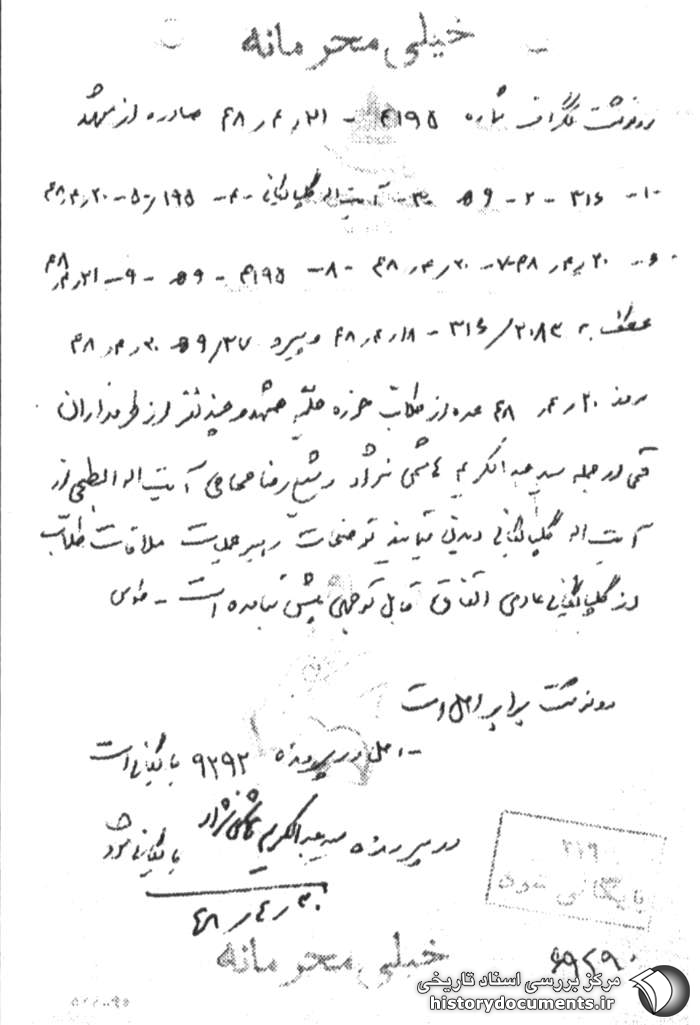 خیلی محرمانه
رونوشت تلگراف شماره ۴۱۹۵ - ۲۱ر۴ر۴۸ صادره از مشهد
۱- ۳۱۶ - ۲- ۹ه ۳- آیت اله گلپایگانی ۴- ۱۹۵/ - ۵- ۲۰ر۴ر۴۸
۶- ۲۰ر۴ر۴۸ ۷- ۲۰ر۴ر۴۸ ۸- ۴۱۹۵ - ۹ه - ۹- ۲۱ر۴ر۴۸
عطف به ۳۱۶/۲۰۸۳ - ۱۸ر۴ر۴۸ و پیرو ۹/۳۷ه ۳۰ر۴ر۴۸
روز ۲۰ر۴ر۴۸ عده از طلاب حوزه علمیه مشهد و چند نفر از طرفداران
قمی از جمله سید عبدالکریم هاشمی نژاد و شیخ رضا آیت اله از
آیت اله گلپایگانی دیدن توضیحات رهبر عملیات ملاقات طلاب
از گلپایگانی عادی اتفاق قابل توجهی پیش نیامده است - طوس
رونوشت برابر اصل است
- اصل در پرونده ۹۲۹۲ بایگانی است
در پرونده سید عبدالکریم هاشمی نژاد بایگانی شود
۳۰ر۴ر۴۸
۲۱۹
بایگانی شود
خیلی محرمانه
مرکز بررسی اسناد تاریخی
historydocuments.ir